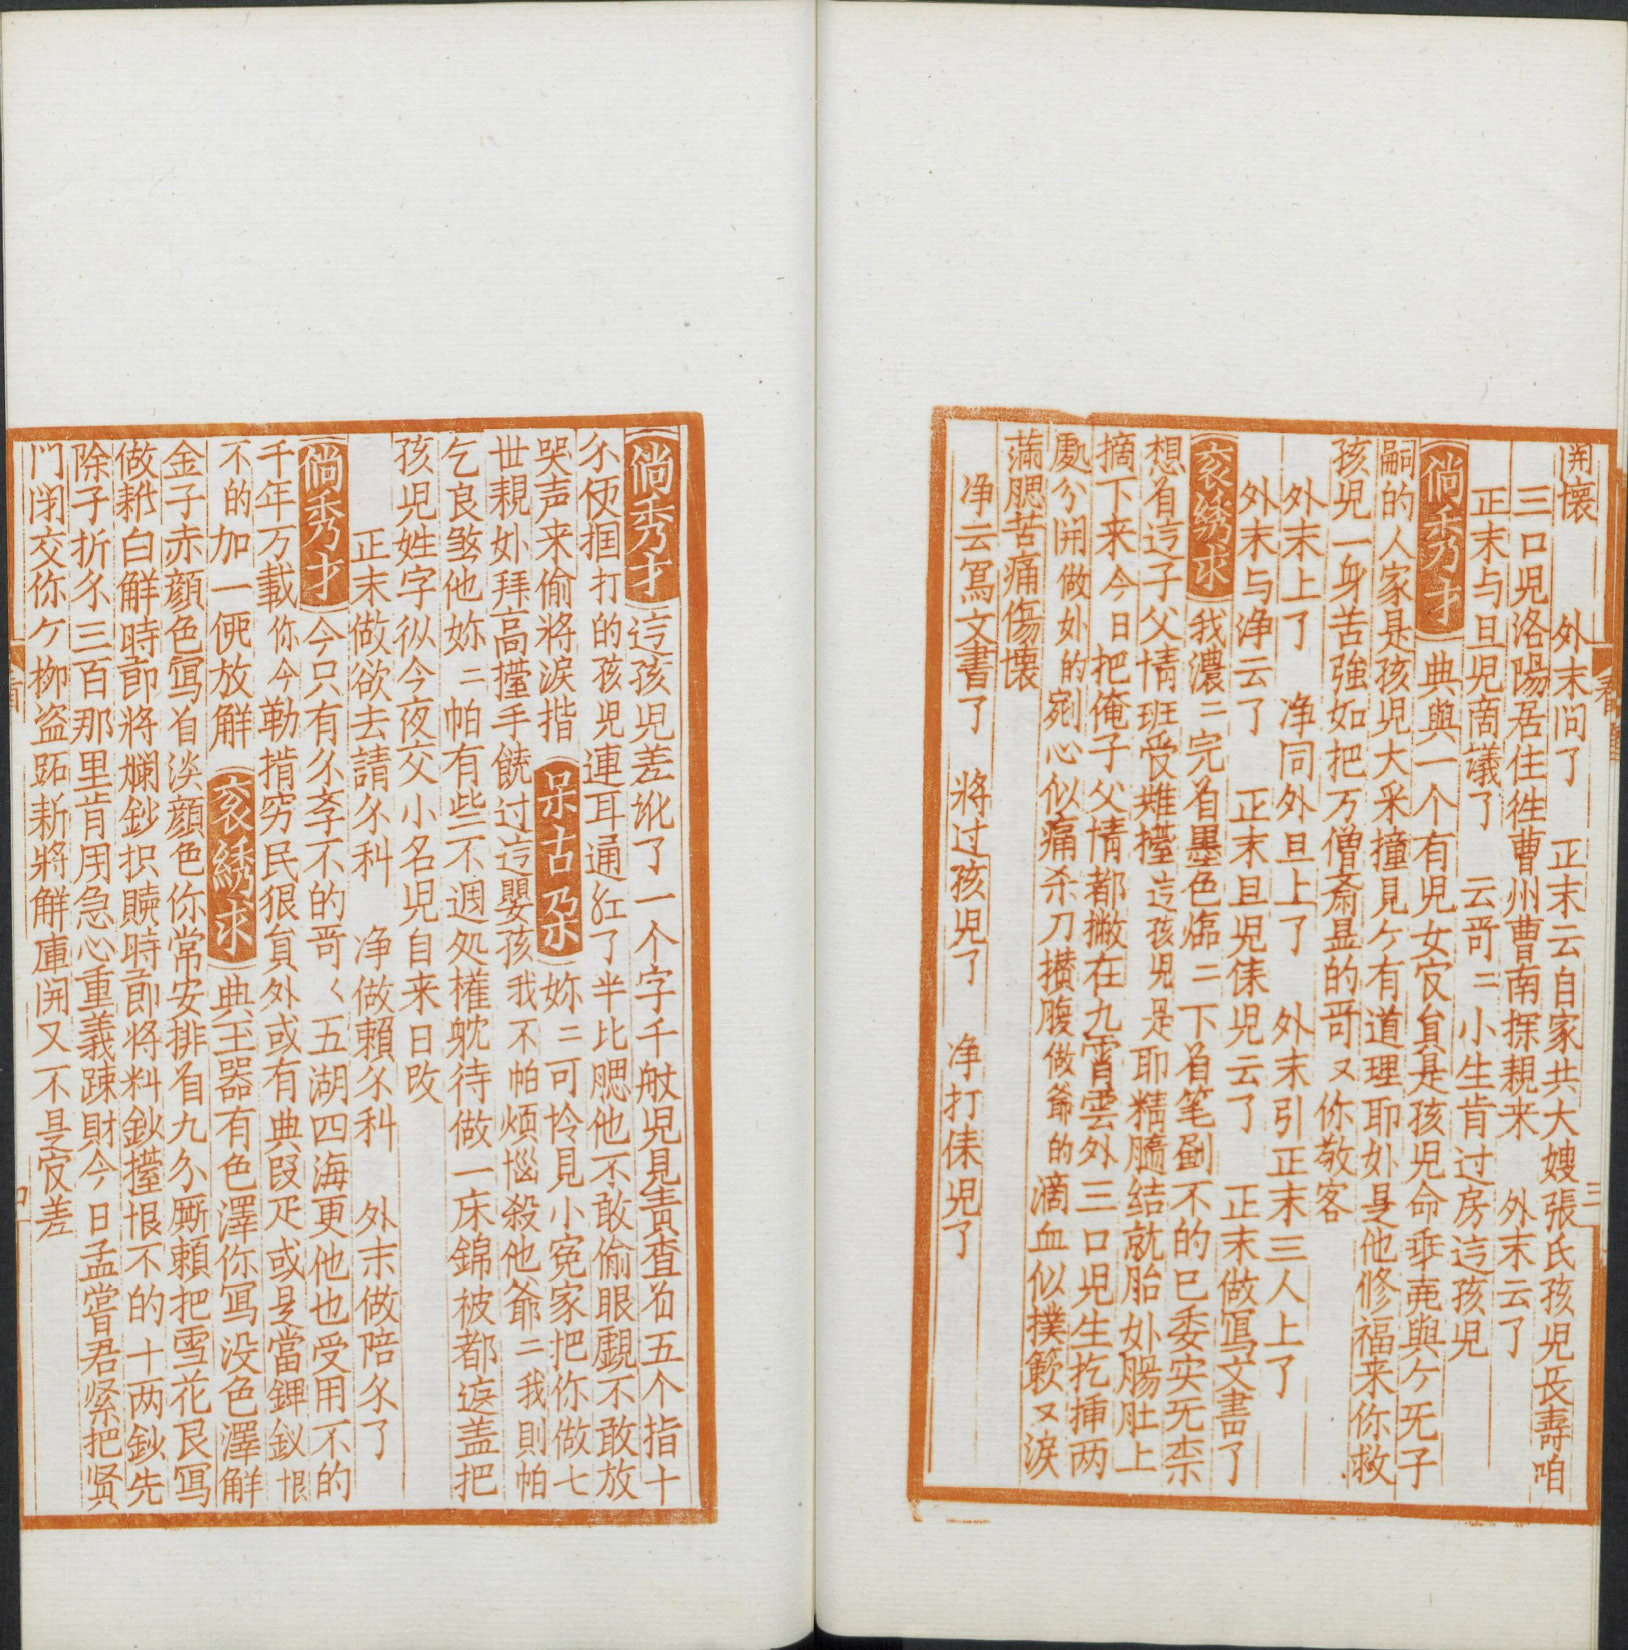 開懷　外末问了　正末云自家共大嫂張氏孩児長壽咱
三口児洛陽居住徃曹州曹南探親来　外末云了
正末与旦児啇議了　云哥〻小生肯过房这孩児
倘秀才　典與一个有児女官員是孩児命乖賣與个无子
嗣的人家是孩児大采撞見个有道理耶娘是他修福来你救
孩児一身苦強如把万僧斎显的哥又你教客
外末上了　净同外旦上了　外末引正末三人上了
外末与净云了　正末旦児俫児云了　正末做写文書了
衮綉求　我濃〻完着墨色臨〻下着笔劃不的已委实无柰
想着这子父情班受难擡这孩児是耶精髓结就胎娘腸肚上
摘下来今日把俺子父情都撇在九霄雲外三口児生扢揷两
處分開做娘的剜心似痛杀刀攅腹做爺的滴血似撲簌又淚
滿腮苦痛傷懷
净云写文書了　将过孩児了　净打俫児了
倘秀才　这孩児差讹了一个字千般児見責查着五个指十
分便掴打的孩児連耳通紅了半比腮他不敢偷眼覷不敢放
哭声来偷將淚揩　呆古朶　妳〻可怜見小寃家把你做七
世親娘拜高擡手饒过这嬰孩我不怕煩惱殺他爺〻我則怕
乞良煞他妳〻帕有些不週処權躭待做一床錦被都遮盖把
孩児姓字从今夜交小名児自来日改
正末做欲去請分科　净做賴分科　外末做陪分了
倘秀才　今只有分李不的哥〻五湖四海更他也受用不的
千年万載你今勒掯穷民狠員外或有典段疋或是當鐶釵恨
不的加一䁟放解　衮綉求　典玉器有色澤你写没色澤解
金子赤顔色写着淡顔色你常安排着九分厮頼把雪花艮写
做耕白解時節將爛鈔抧贖時節将料鈔擡恨不的十两鈔先
除子折分三百那里肯用急心重義踈財今日孟嘗君紧把贤
门闭交你个栁盗跖新將解庫開又不是官差